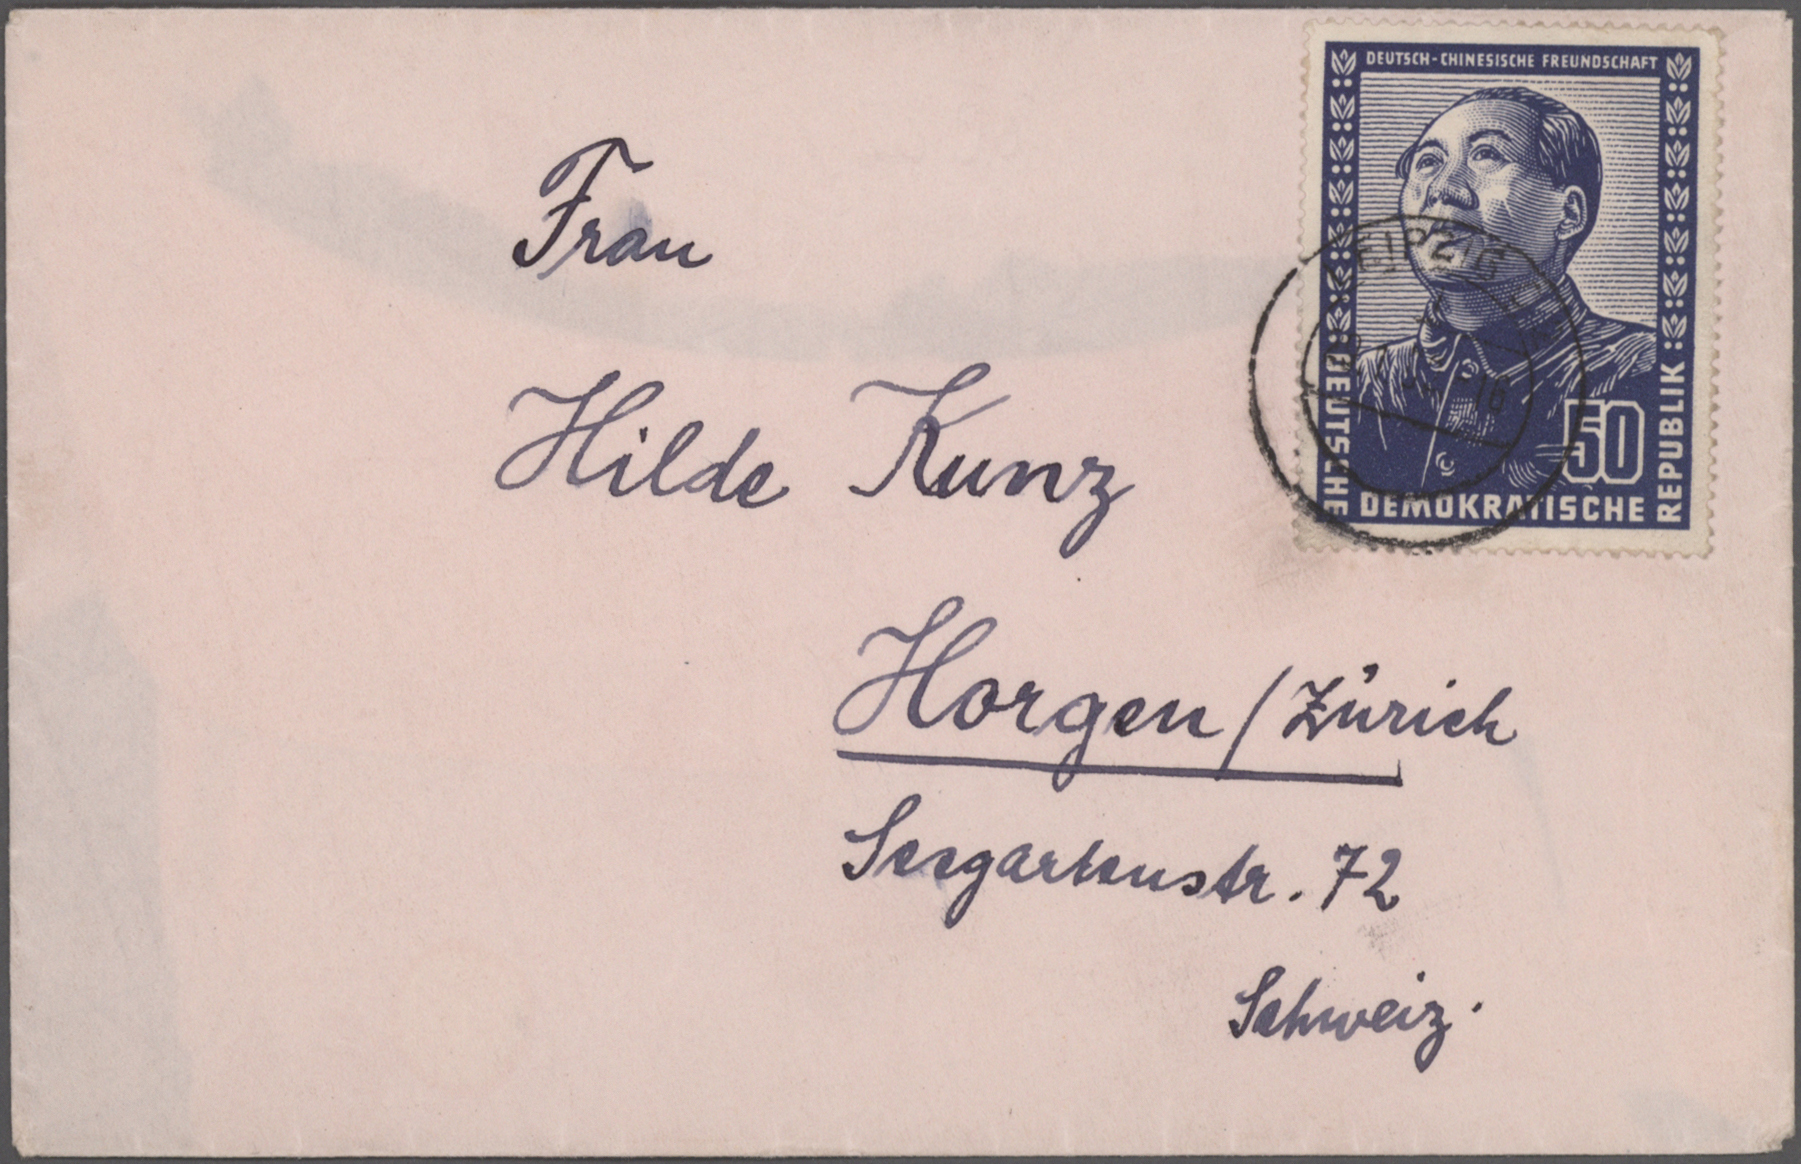 DEUTSCH-CHINESISCHE FREUNDSCHAFT
50
DEUTSCHE
DEMOKRATISCHE
REPUBLIK
LEIPZIG
Frau
Hilde Kunz
Horgen/Zürich
Seegartenstr. 72
Schweiz.